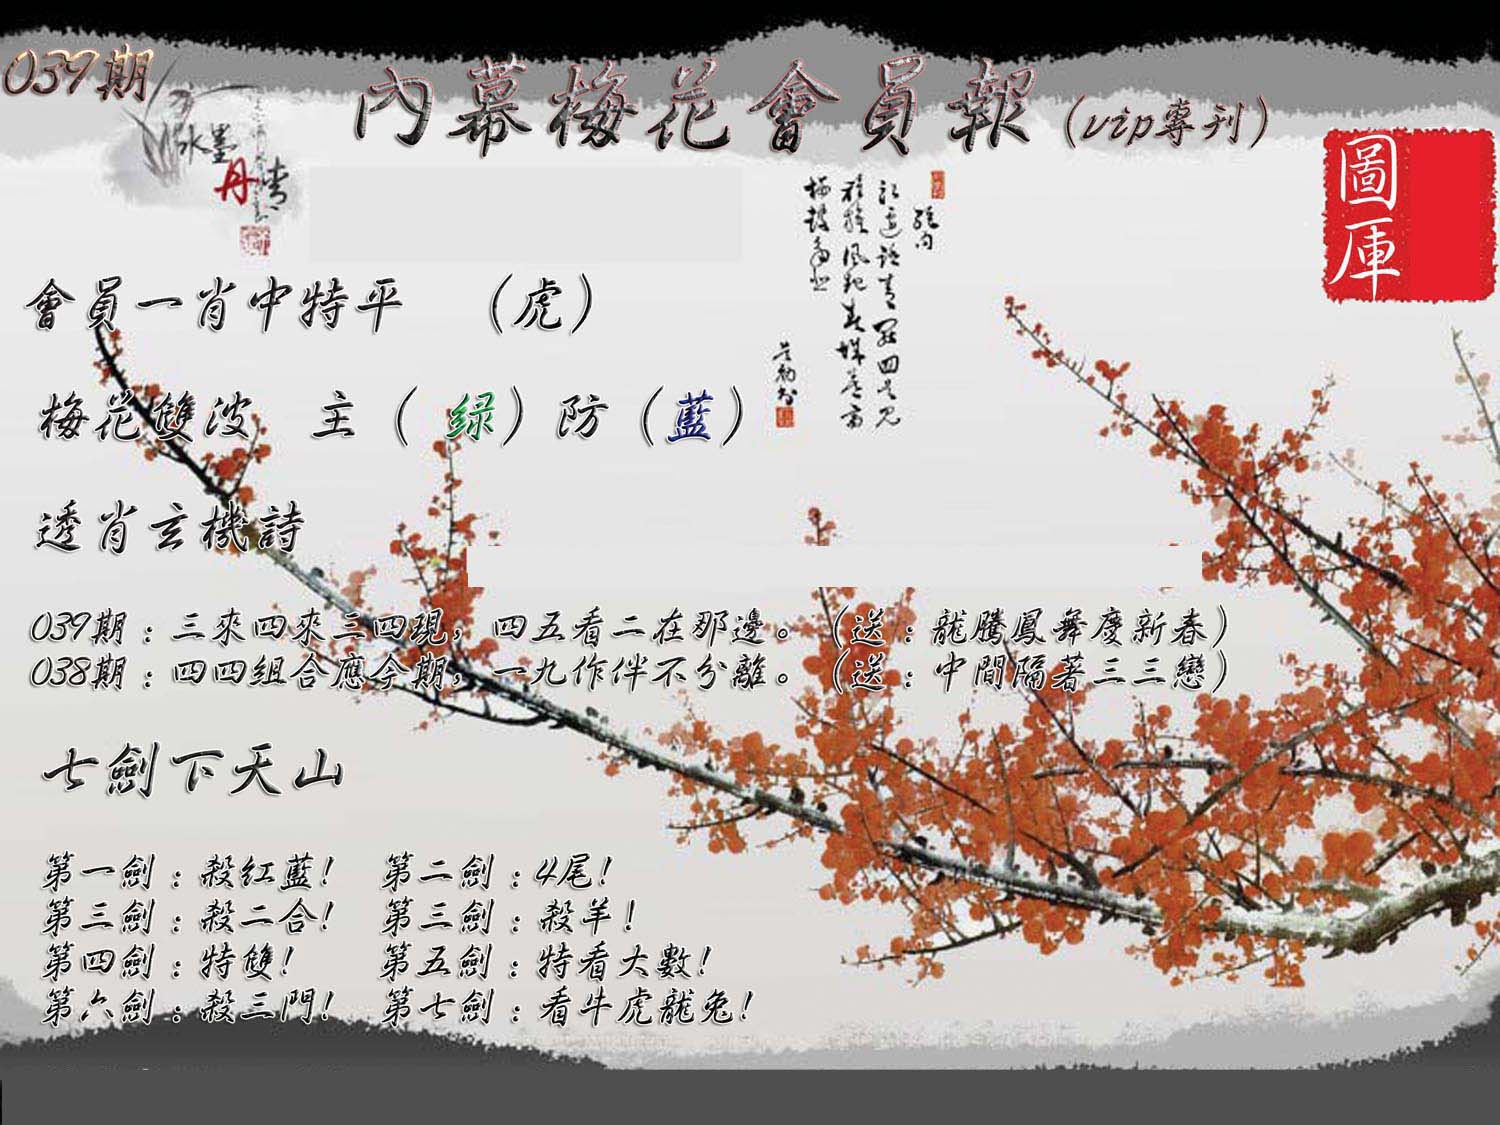 039期
內幕梅花會員報(vip專刊)
水墨
丹青
圖庫
會員一肖中特平 （虎）
梅花雙波 主（綠）防（藍）
透肖玄機詩
039期：三來四來三四現，四五看二在那邊。（送：龍騰鳳舞慶新春）
038期：四四組合應今期，一九作伴不分離。（送：中間隔著三三戀）
七劍下天山
第一劍：殺紅藍！ 第二劍：4尾！
第三劍：殺二合！ 第三劍：殺羊！
第四劍：特雙！ 第五劍：特看大數！
第六劍：殺三門！ 第七劍：看牛虎龍兔！